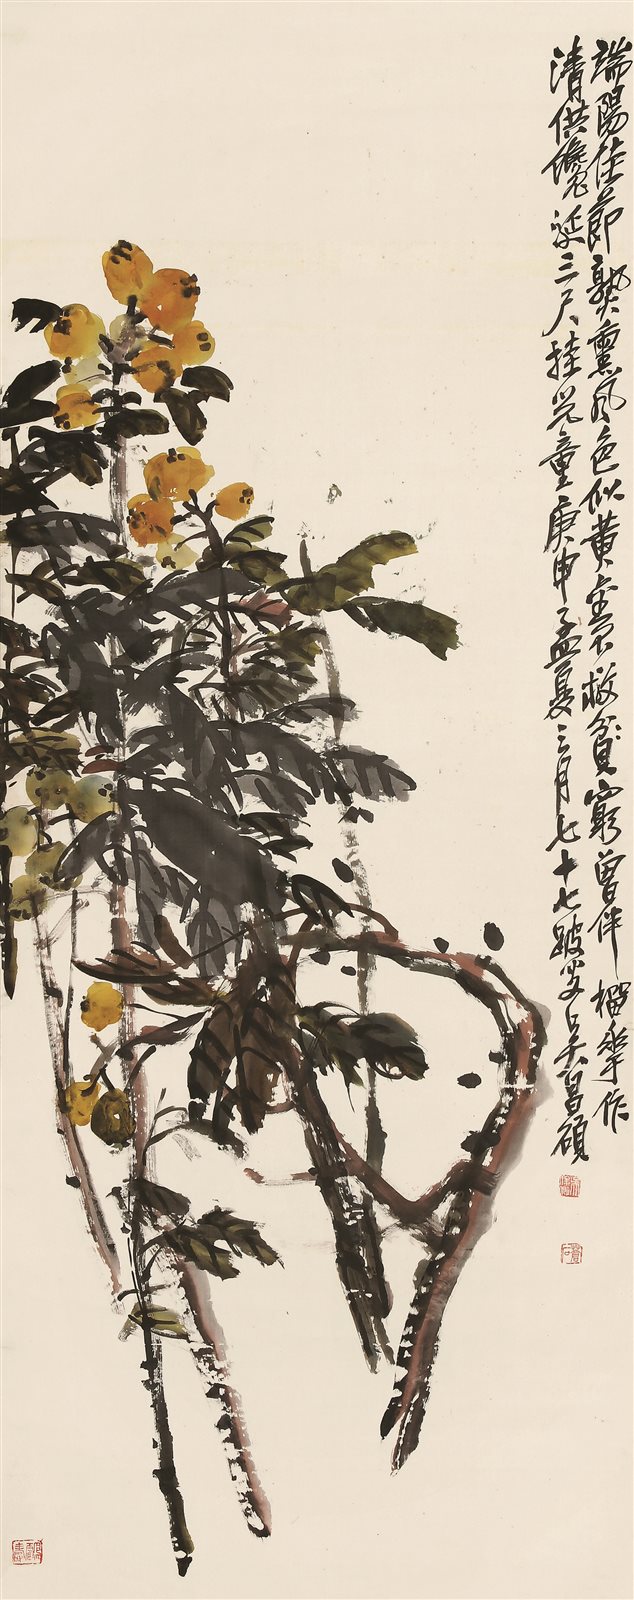 端陽佳節熟熏風色似黃金不救貧窮曾伴榴華作
清供饞涎三尺挂兒童庚申孟夏之月七十七跛叟吳昌碩